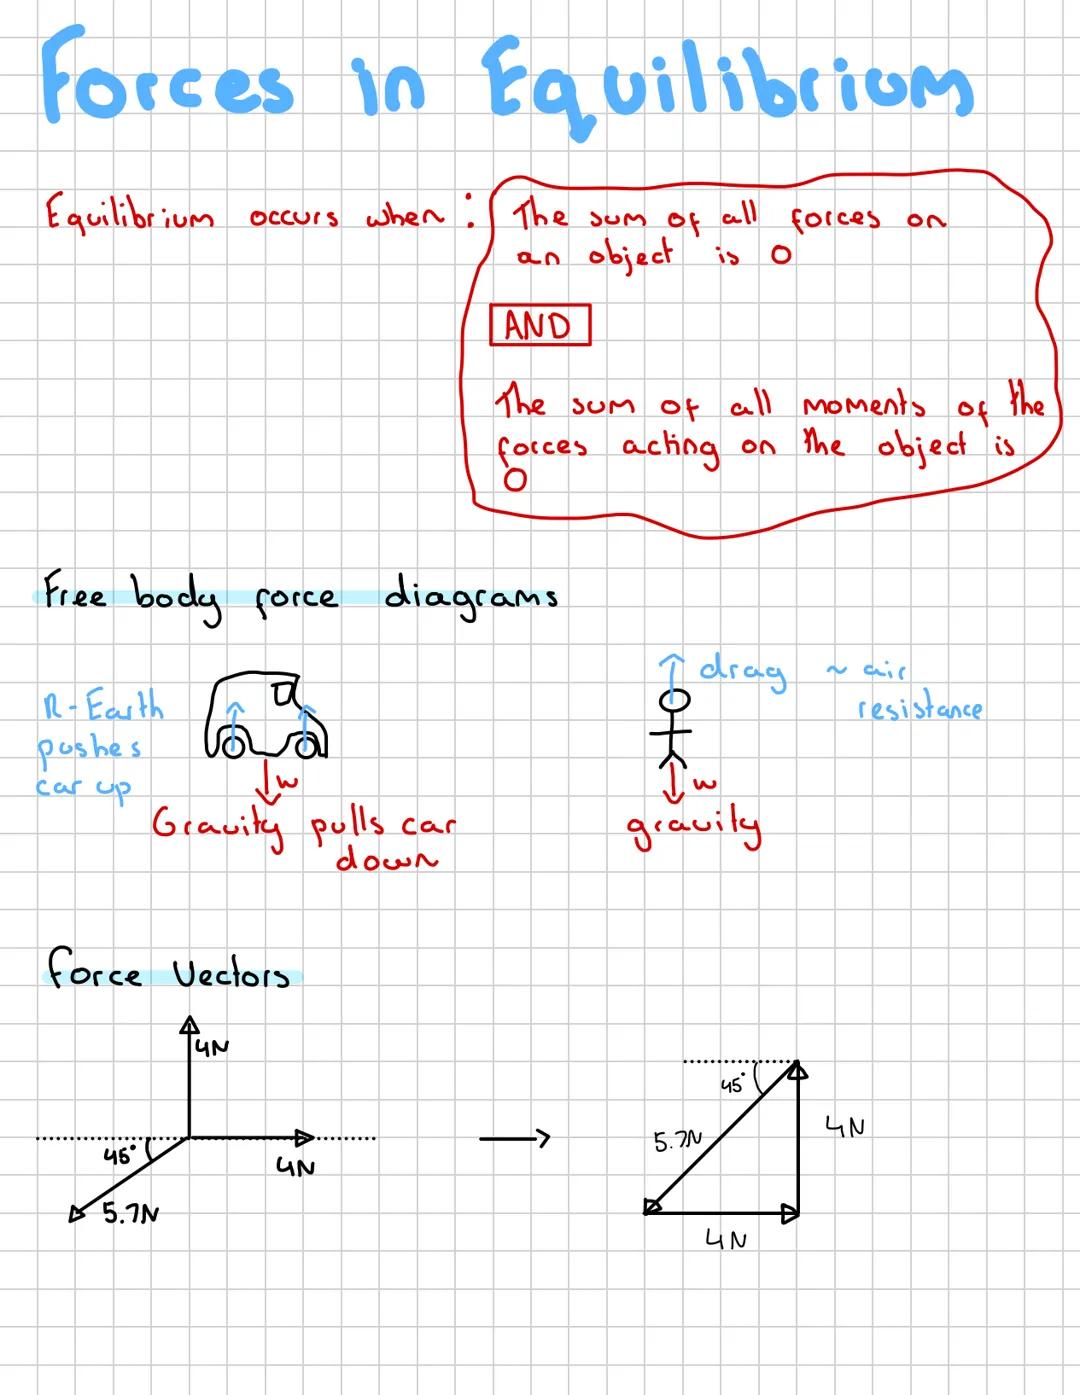 Forces in Equilibrium
Equilibrium occurs when :
The sum of all forces on
an object is 0
AND
The sum of all moments of the
forces acting on the object is
0
Free body force diagrams
R-Earth
pushes
car up
w
Gravity pulls car
down
drag ~ air
resistance
w
gravity
Force Vectors
4N
45°
4N
5.7N
45°
5.7N
4N
4N